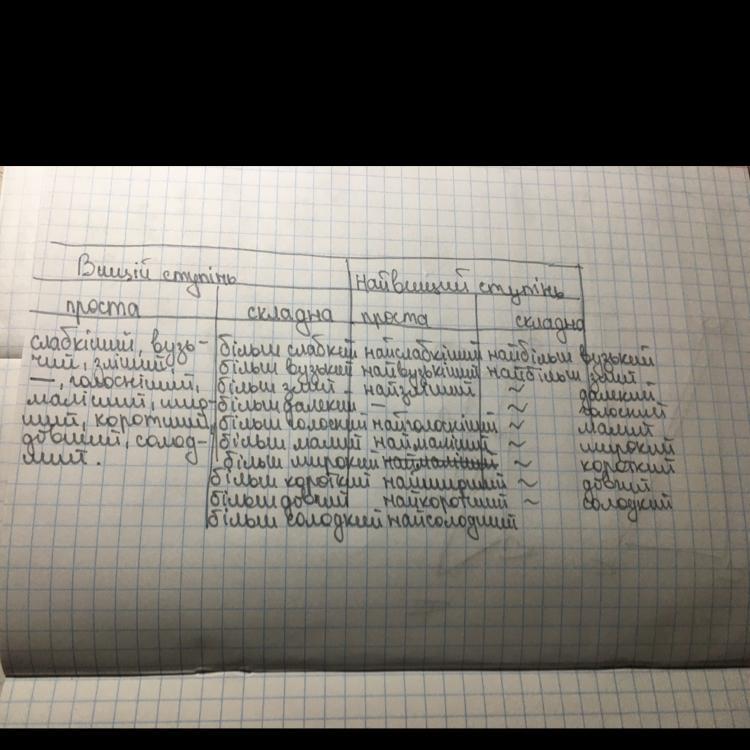 Вищій ступінь найвищий ступінь
проста складна проста складна
слабкіший, вузь- більш слабкий найслабкіший найбільш вузький
чий, зліший, більш вузький найвузькіший найбільш злий
—, голосніший, більш злий найзліший ~ далекий
маліший, ши- більш далекий — ~ голосний
щий, коротший, більш голосний найголоскіший ~ малий
довший, солод- більш малий наймаліший ~ широкий
ший. більш широкий наймаліший ~ короткий
більш короткий найширший ~ довгий
більш довгий найкоротший ~ солодкий
більш солодкий найсолодший